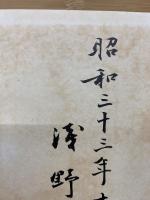 昭和三十三年
浅野